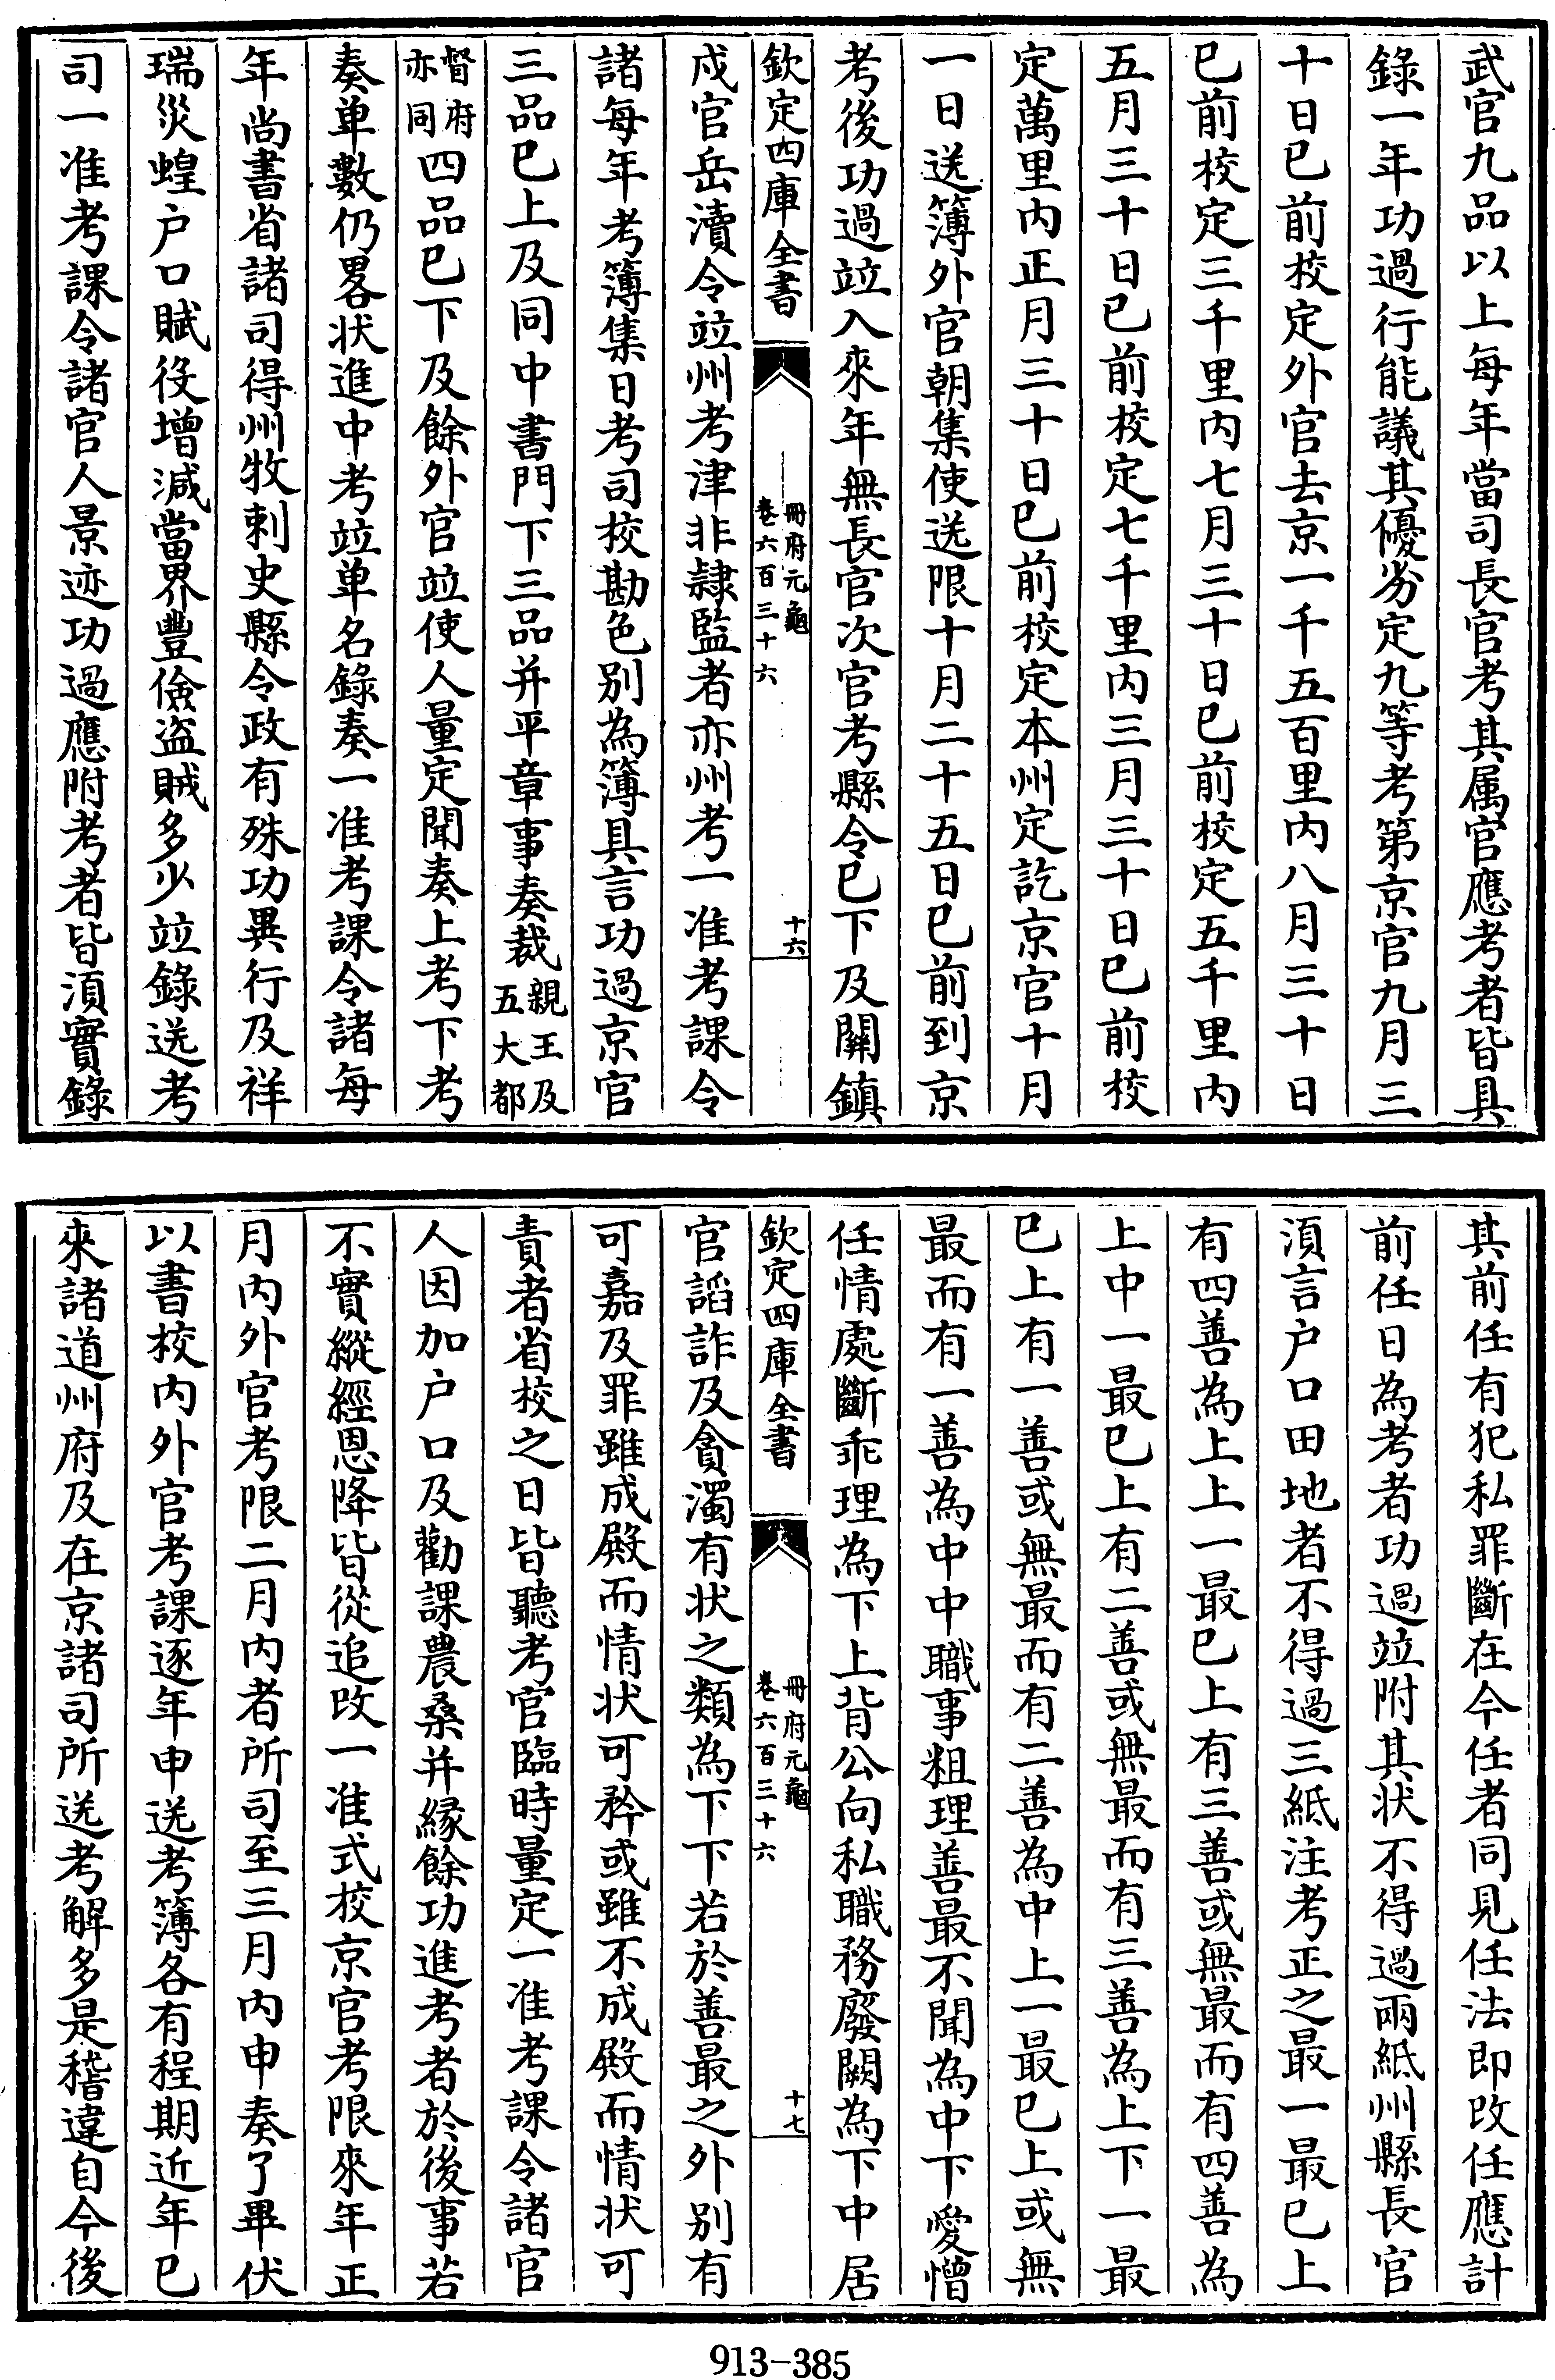 武官九品以上每年當司長官考其属官應考者皆具
錄一年功過行能議其優劣定九等考第京官九月三
十日已前校定外官去京一千五百里内八月三十日
已前校定三千里内七月三十日已前校定五千里内
五月三十日已前校定七千里内三月三十日已前校
定萬里内正月三十日已前校定本州定訖京官十月
一日送簿外官朝集使送限十月二十五日已前到京
考後功過竝入來年無長官次官考縣令已下及關鎮
欽定四庫全書
冊府元龜
卷六百三十六
十六
戍官岳瀆令竝州考津非隷監者亦州考一准考課令
諸每年考簿集日考司校勘色别為簿具言功過京官
三品已上及同中書門下三品并平章事奏裁親王及五大都
督府亦同四品已下及餘外官竝使人量定聞奏上考下考
奏单數仍畧状進中考竝单名錄奏一准考課令諸每
年尚書省諸司得州牧刺史縣令政有殊功異行及祥
瑞災蝗户口賦役增減當界豐儉盗賊多少竝錄送考
司一准考課令諸官人景迹功過應附考者皆湏實錄
其前任有犯私罪斷在今任者同見任法即改任應計
前任日為考者功過竝附其状不得過兩紙州縣長官
湏言户口田地者不得過三紙注考正之最一最已上
有四善為上上一最已上有三善或無最而有四善為
上中一最已上有二善或無最而有三善為上下一最
已上有一善或無最而有二善為中上一最已上或無
最而有一善為中中職事粗理善最不聞為中下愛憎
任情處斷乖理為下上背公向私職務廢闕為下中居
欽定四庫全書
冊府元龜
卷六百三十六
十七
官謟詐及貪濁有状之類為下下若於善最之外别有
可嘉及罪雖成殿而情状可矜或雖不成殿而情状可
責者省校之日皆聽考官臨時量定一准考課令諸官
人因加户口及勸課農桑并縁餘功進考者於後事若
不實縱經恩降皆從追改一准式校京官考限來年正
月内外官考限二月内者所司至三月内申奏了畢伏
以書校内外官考課逐年申送考簿各有程期近年已
來諸道州府及在京諸司所送考解多是稽違自今後
913-385